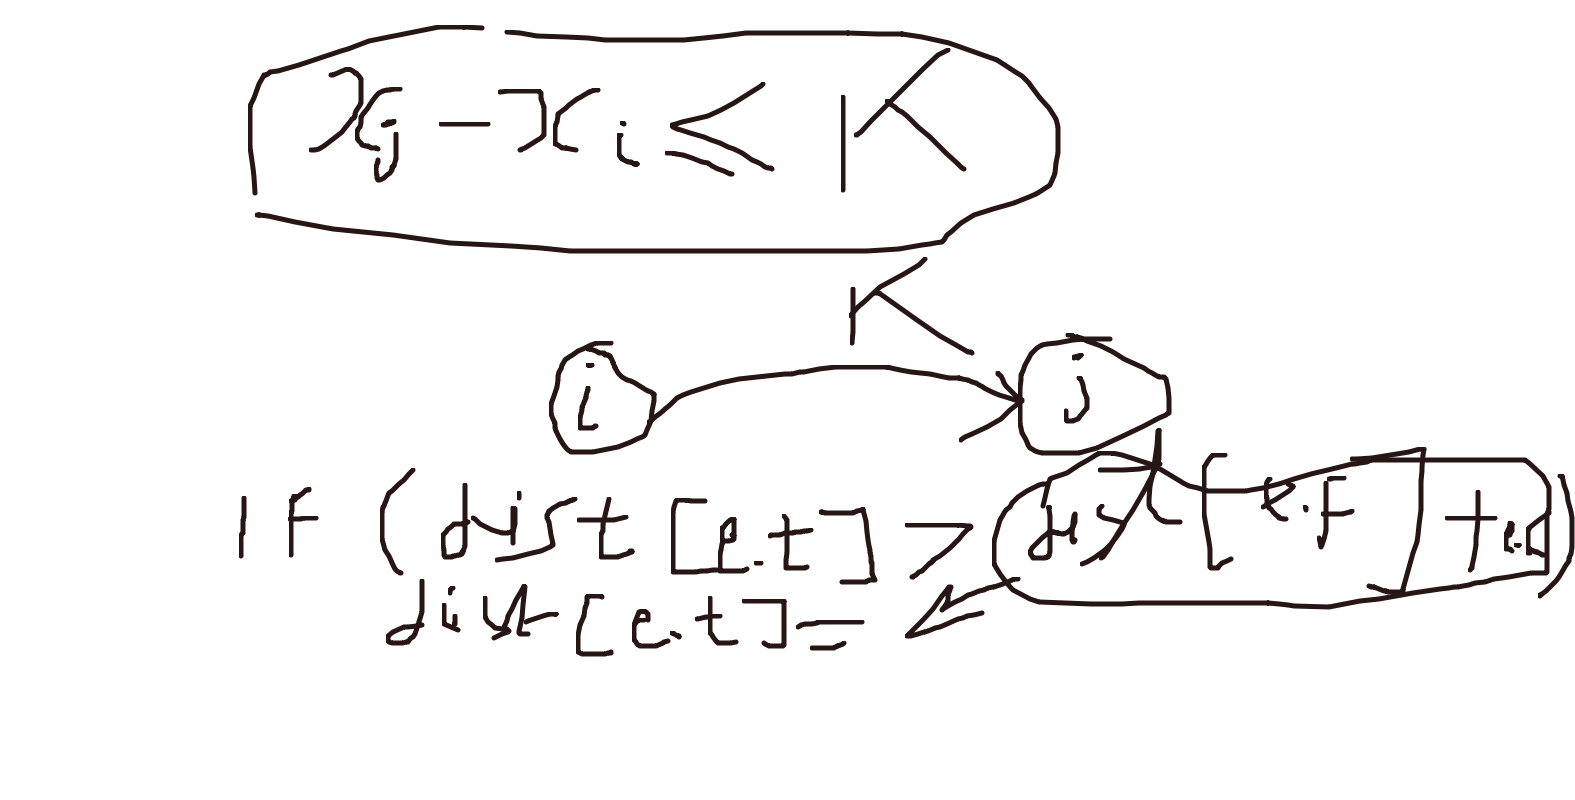 xj - xi ≤ K
K
i j
IF (dist [e.t] > dist [e.F] + e.d)
dist [e.t] =